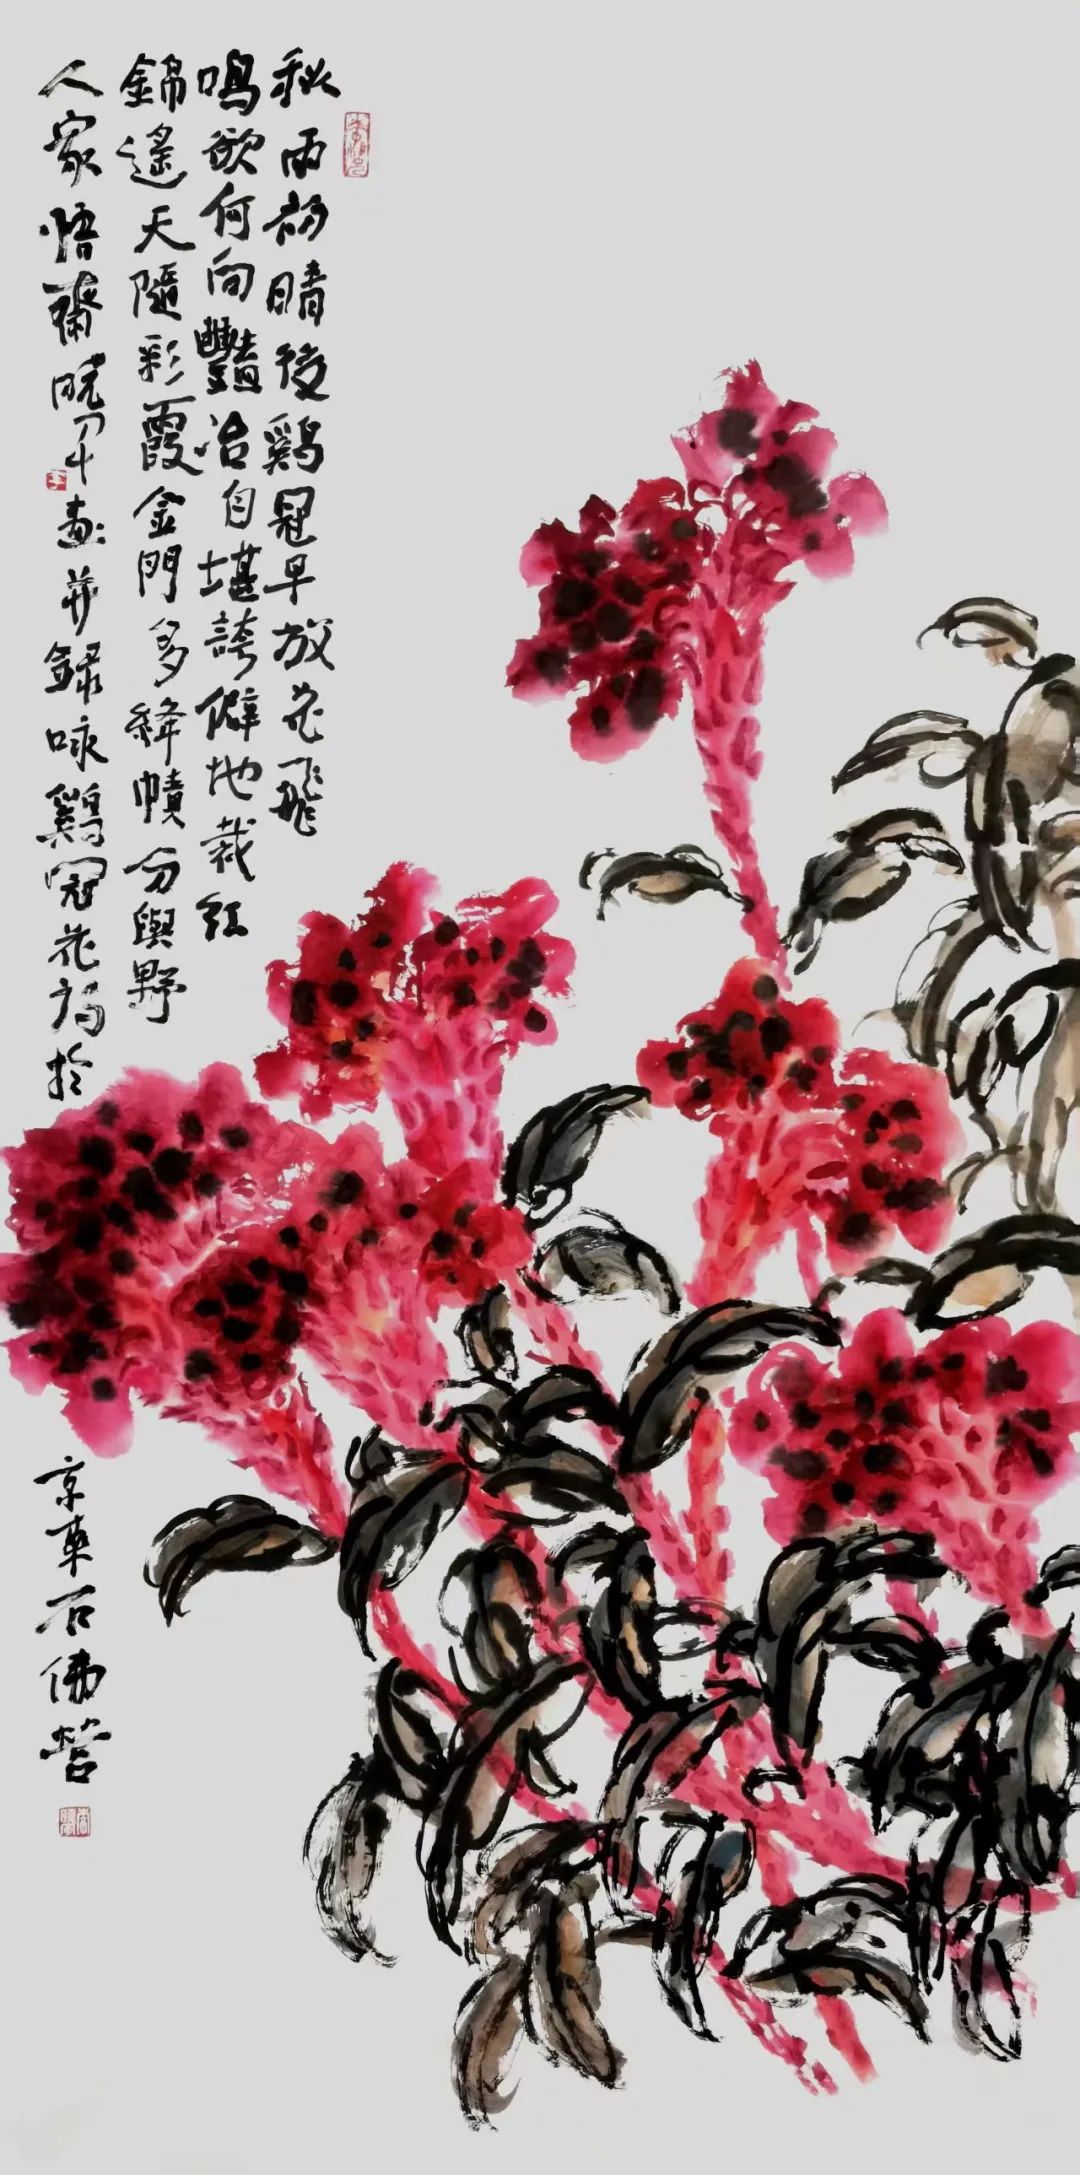 秋雨初晴後鷄冠早放花飛
鳴欲何向豔冶自堪誇僻地裁紅
錦遙天隨彩霞金門多絳幘分與野
人家悟齋曉畫并錄咏鷄冠花詩於
京華石佛營